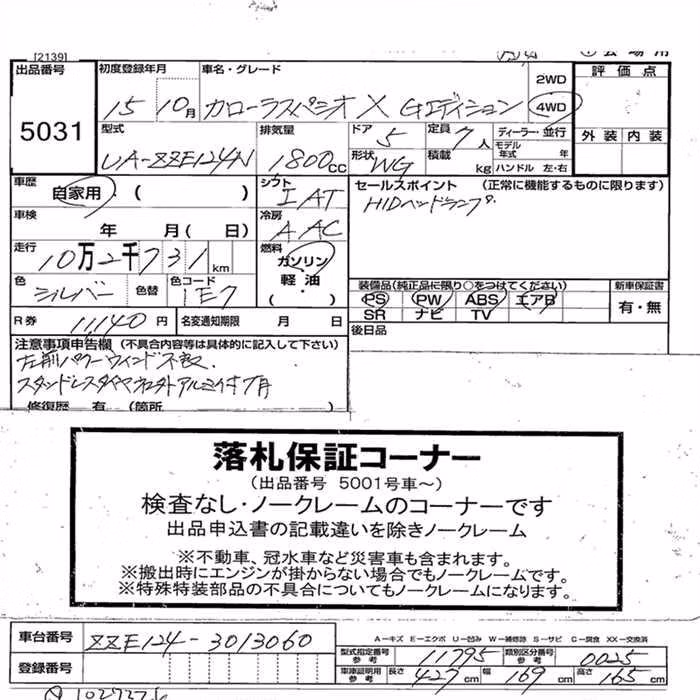 [2139]
出品番号
5031
初度登録年月
15 10月
車名・グレード
カローラスパシオ X Gエディション
2WD
4WD
評価点
外装 内装
型式
UA-ZZE124N
排気量
1800cc
ドア
5
定員
7人
ディーラー・並行
モデル年式 年
形状
WG
積載
kg
ハンドル 左・右
車歴
自家用・( )
シフト
IAT
セールスポイント (正常に機能するものに限ります)
HIDヘッドランプ
車検
年 月( 日)
冷房
AAC
走行
10万2千731km
燃料
ガソリン
軽油・
( )
色
シルバー
色替
色コード
1E7
装備品(純正品に限り○をつけてください)
PS PW ABS エアB
SR ナビ TV
新車保証書
有・無
R券
11,140円
名変通知期限 月 日
後日品
注意事項申告欄 (不具合内容等は具体的に記入して下さい)
左前パワーウインド不良
修復歴 有 (箇所
落札保証コーナー
(出品番号 5001号車～)
検査なし・ノークレームのコーナーです
出品申込書の記載違いを除きノークレーム
※不動車、冠水車など災害車も含まれます。
※搬出時にエンジンが掛からない場合でもノークレームです。
※特殊特装部品の不具合についてもノークレームになります。
車台番号
ZZE124-3013060
登録番号
A-キズ E-エクボ U-凹み W-補修跡 S-サビ C-腐食 XX-交換済
型式指定番号 参考
11795
類別区分番号 参考
0025
車庫証明用 参考
長さ 427cm 幅 169cm 高さ 165cm